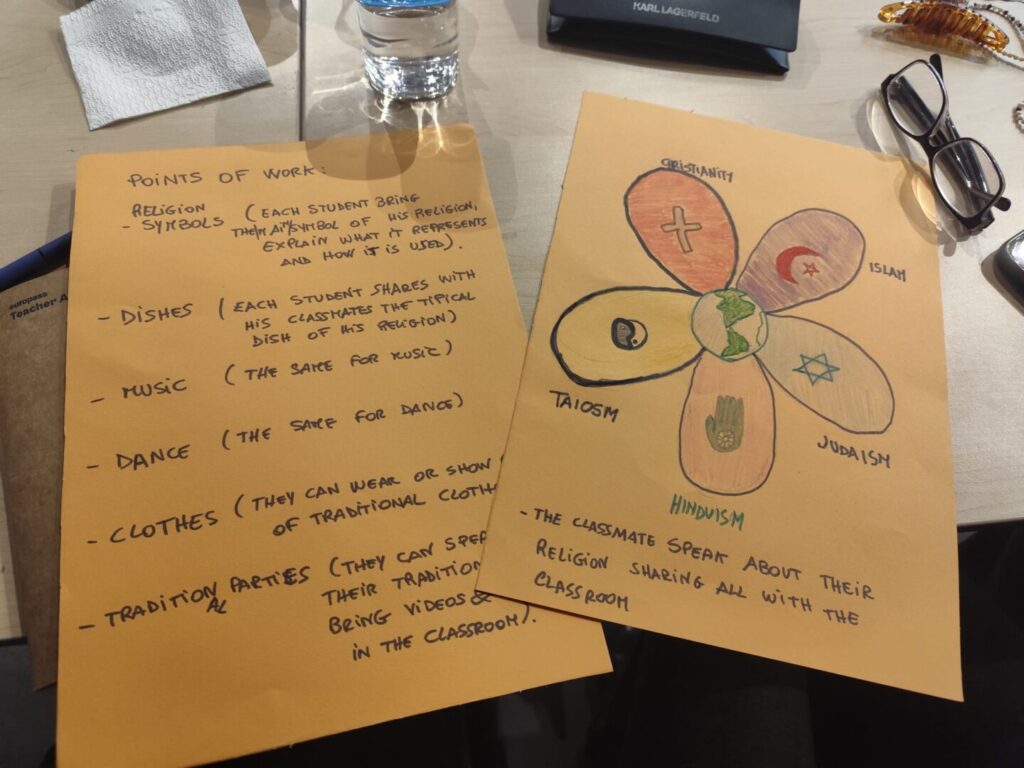 KARL LAGERFELD
europass
Teacher A
POINTS OF WORK:
RELIGION
- SYMBOLS (EACH STUDENT BRING
SYMBOL OF HIS RELIGION,
EXPLAIN WHAT IT REPRESENTS
AND HOW IT IS USED).
- DISHES (EACH STUDENT SHARES WITH
HIS CLASSMATES THE TIPICAL
DISH OF HIS RELIGION)
- MUSIC (THE SAME FOR MUSIC)
- DANCE (THE SAME FOR DANCE)
- CLOTHES (THEY CAN WEAR OR SHOW
OF TRADITIONAL CLOTH
- TRADITIONAL PARTIES (THEY CAN SPE
THEIR TRADITION
BRING VIDEOS &
IN THE CLASSROOM).
CRISTIANITY
ISLAM
TAIOSM
JUDAISM
HINDUISM
- THE CLASSMATE SPEAK ABOUT THEIR
RELIGION SHARING ALL WITH THE
CLASSROOM